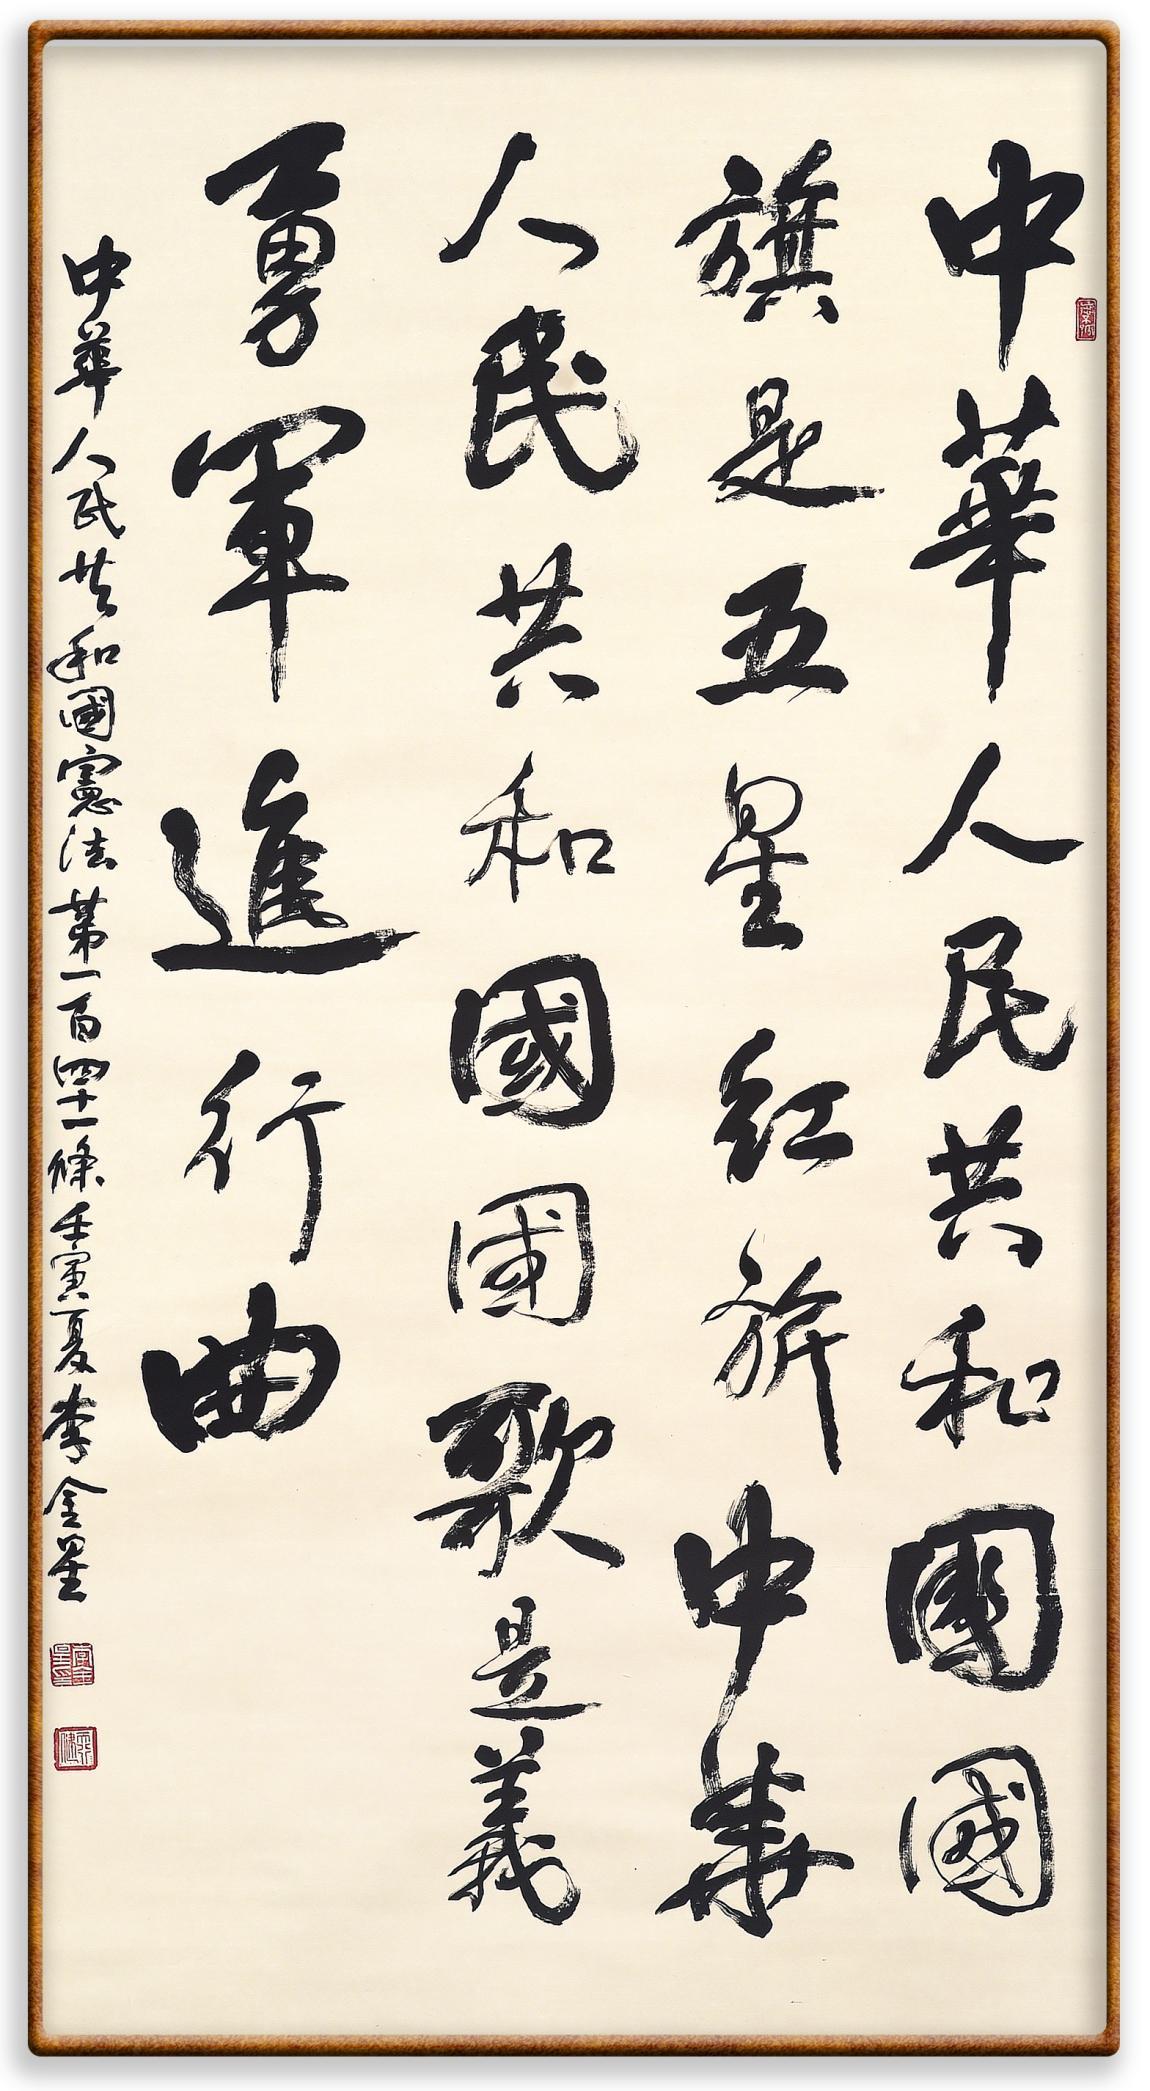 中華人民共和國國
旗是五星紅旗中華
人民共和國國歌是義
勇軍進行曲
中華人民共和國憲法第一百四十一條壬寅夏李金星